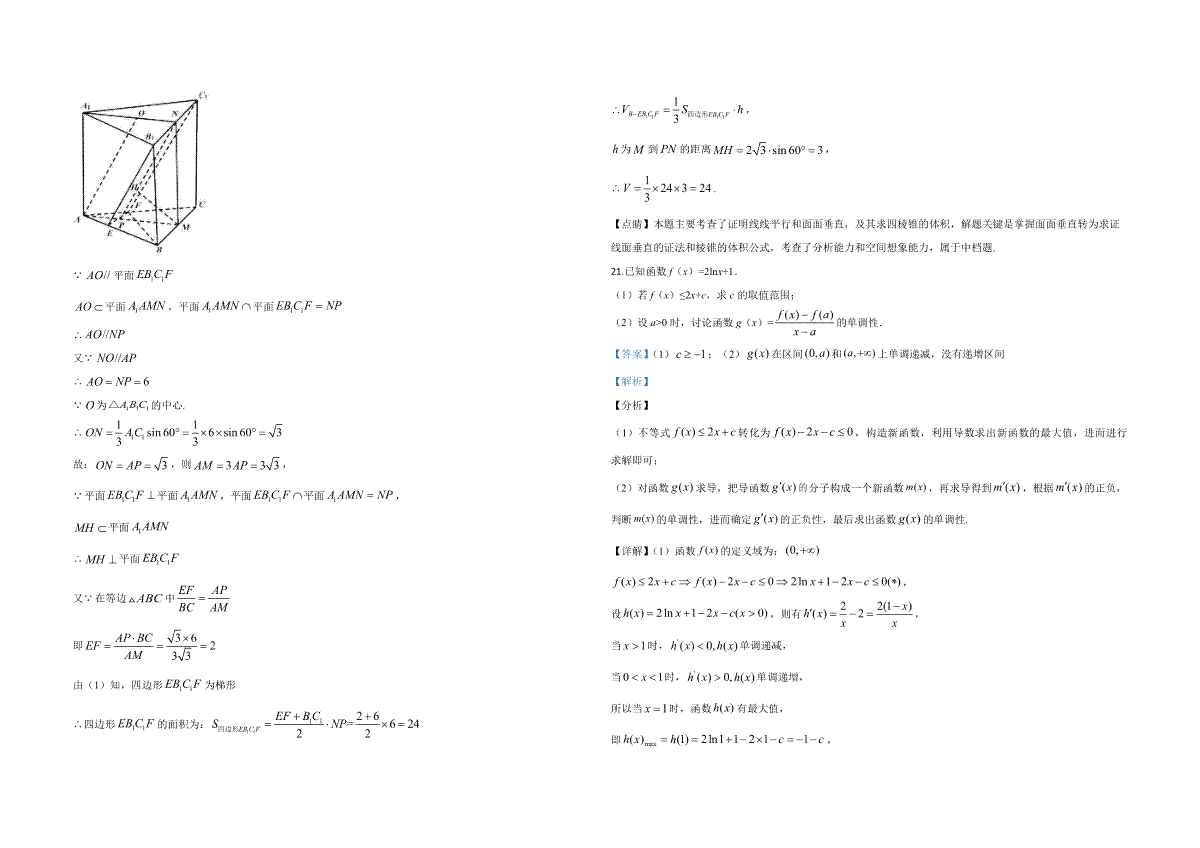 A₁ O N C₁
B₁
H
F
A E P M C
B
∵ AO// 平面EB₁C₁F
AO⊂平面A₁AMN，平面A₁AMN∩平面EB₁C₁F = NP
∴ AO//NP
又∵ NO//AP
∴ AO = NP = 6
∵ O为△A₁B₁C₁的中心.
∴ ON = 1/3 A₁C₁ sin 60° = 1/3×6×sin 60° = √3
故：ON = AP = √3，则AM = 3AP = 3√3，
∵平面EB₁C₁F⊥平面A₁AMN，平面EB₁C₁F∩平面A₁AMN = NP，
MH⊂平面A₁AMN
∴ MH⊥平面EB₁C₁F
又∵在等边△ABC中EF/BC = AP/AM
即EF = AP·BC/AM = √3×6/3√3 = 2
由（1）知，四边形EB₁C₁F为梯形
∴四边形EB₁C₁F的面积为：S四边形EB₁C₁F = (EF + B₁C₁)/2 ·NP= (2+6)/2 ×6 = 24
∴V_{B−EB₁C₁F} = 1/3 S四边形EB₁C₁F·h，
h为M到PN的距离MH = 2√3·sin 60° = 3，
∴V = 1/3×24×3 = 24.
【点睛】本题主要考查了证明线线平行和面面垂直，及其求四棱锥的体积，解题关键是掌握面面垂直转为求证
线面垂直的证法和棱锥的体积公式，考查了分析能力和空间想象能力，属于中档题.
21.已知函数f（x）=2lnx+1．
（1）若f（x）≤2x+c，求c的取值范围；
（2）设a>0时，讨论函数g（x）= (f(x)−f(a))/(x−a) 的单调性．
【答案】（1）c ≥ −1；（2）g(x)在区间(0,a)和(a,+∞)上单调递减，没有递增区间
【解析】
【分析】
（1）不等式f(x) ≤ 2x+c转化为f(x)−2x−c ≤ 0，构造新函数，利用导数求出新函数的最大值，进而进行
求解即可；
（2）对函数g(x)求导，把导函数g′(x)的分子构成一个新函数m(x)，再求导得到m′(x)，根据m′(x)的正负，
判断m(x)的单调性，进而确定g′(x)的正负性，最后求出函数g(x)的单调性.
【详解】（1）函数f(x)的定义域为：(0,+∞)
f(x) ≤ 2x+c ⇒ f(x)−2x−c ≤ 0 ⇒ 2ln x+1−2x−c ≤ 0(∗)，
设h(x) = 2ln x+1−2x−c(x > 0)，则有h′(x) = 2/x −2 = 2(1−x)/x，
当x > 1时，h′(x) < 0,h(x)单调递减，
当0 < x < 1时，h′(x) > 0,h(x)单调递增，
所以当x = 1时，函数h(x)有最大值，
即h(x)max = h(1) = 2ln1+1−2×1−c = −1−c，